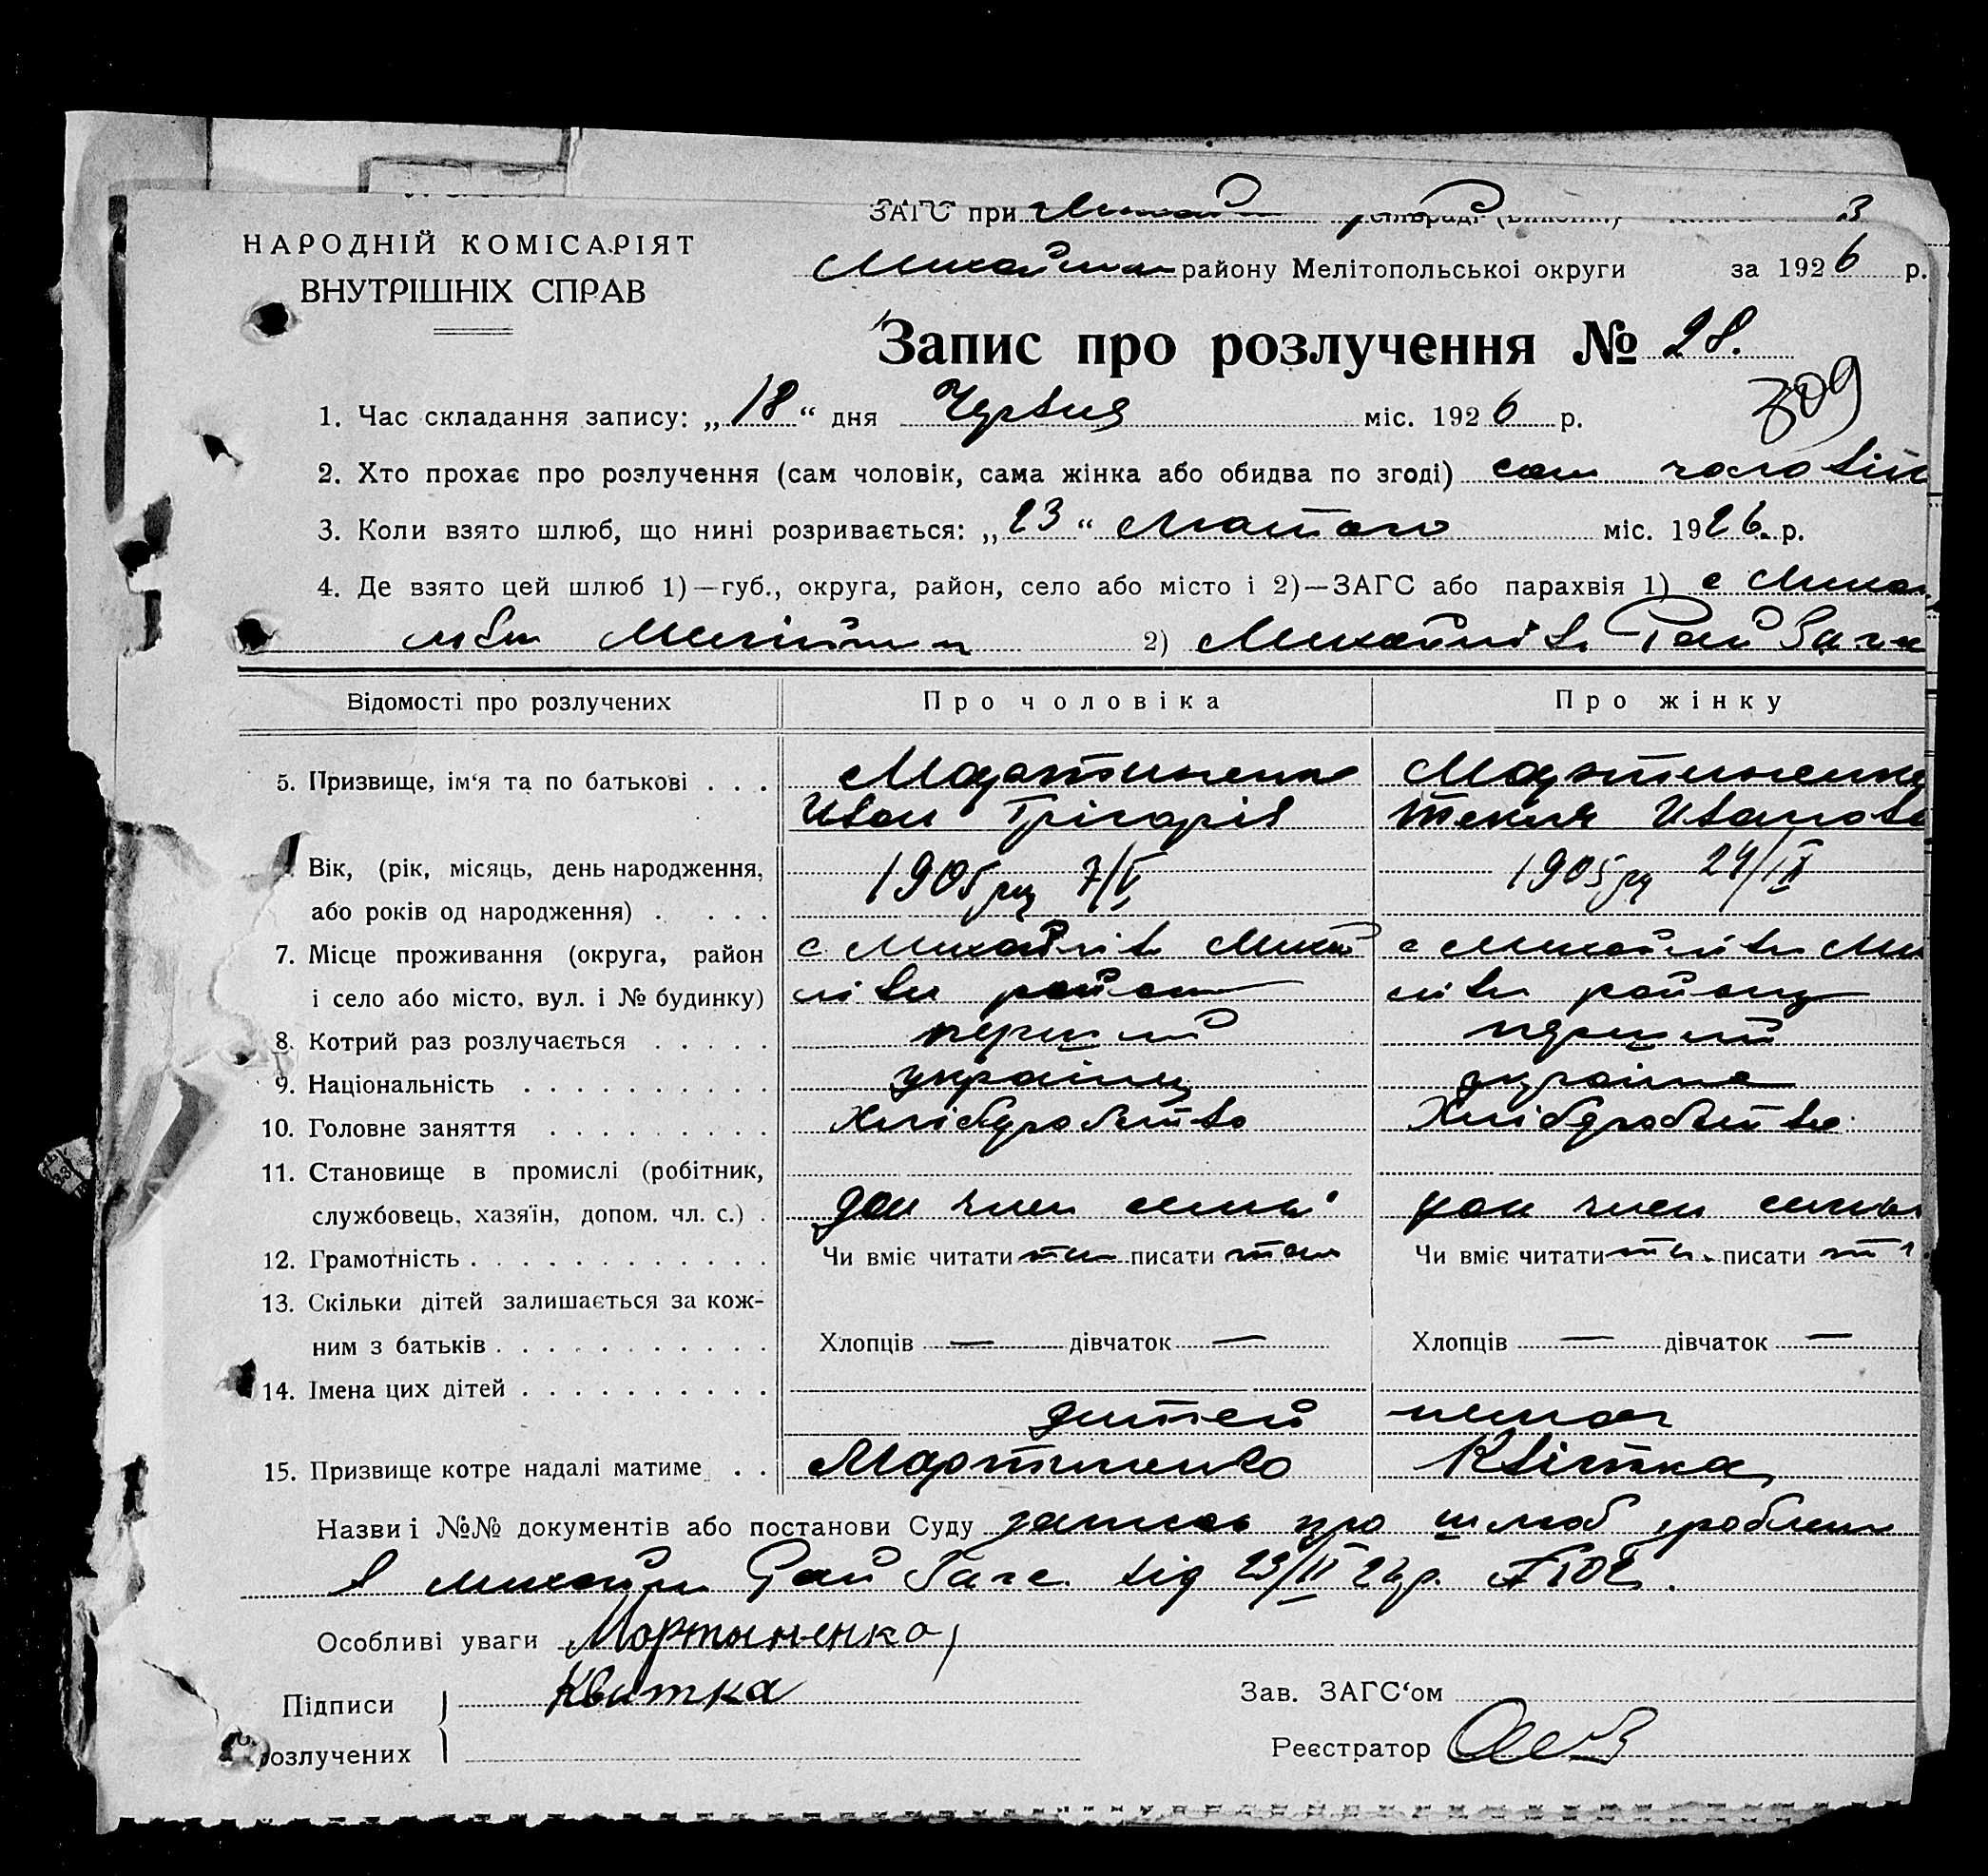 ЗАГС при Михай
НАРОДНІЙ КОМІСАРІЯТ
ВНУТРІШНІХ СПРАВ
району Мелітопольської округи за 1926 р.
Запис про розлучення № 28.
309
1. Час складання запису: „18“ дня Червня міс. 1926 р.
2. Хто прохає про розлучення (сам чоловік, сама жінка або обидва по згоді) сам чоловік
3. Коли взято шлюб, що нині розривається: „23“ Лютого міс. 1926 р.
4. Де взято цей шлюб 1)—губ., округа, район, село або місто і 2)—ЗАГС або парахвія 1) с Михай
2) Михайлів Рай Загс
Відомості про розлучених Про чоловіка Про жінку
5. Призвище, ім‘я та по батькові . . . Мартиненко Мартиненко
Иван Грігорів Текля Иванов
Вік, (рік, місяць, день народження, 1905 рц 7/V 1905 рц 24/IX
або років од народження) . . . .
7. Місце проживання (округа, район с Михайлів Михай с Михайлів Ми
і село або місто, вул. і № будинку) лівск району лівск району
8. Котрий раз розлучається . . . . . перший перший
9. Національність . . . . . . . . . . українец українка
10. Головне заняття . . . . . . . . . Хліборобство Хліборобство
11. Становище в промислі (робітник,
службовець, хазяїн, допом. чл. с.) . доп член семьі доп член семьі
12. Грамотність . . . . . . . . . . . . Чи вміє читати так писати так Чи вміє читати так писати т
13. Скільки дітей залишається за кож-
ним з батьків . . . . . . . . . . . Хлопців — дівчаток — Хлопців — дівчаток —
14. Імена цих дітей . . . . . . . . . .
дитей немає
15. Призвище котре надалі матиме . . Мартиненко Квітка
Назви і №№ документів або постанови Суду запись про шлюб зроблен
в Михайл Рай Загс від 23/II 26 р. № 102.
Особливі уваги Мортыненко,
Підписи Квитка Зав. ЗАГС‘ом
розлучених Реєстратор